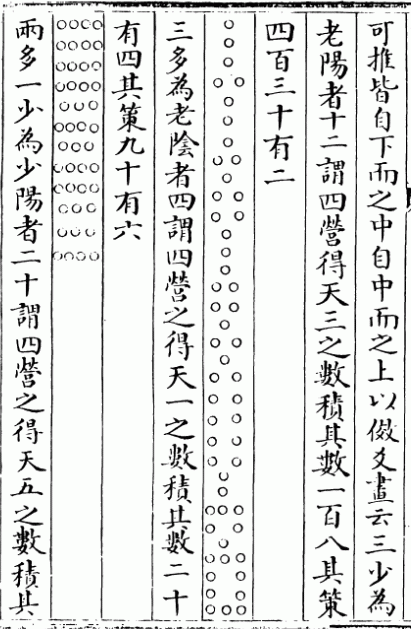 可推皆自下而之中自中而之上以儆爻畫云三少為
老陽者十二謂四營得天三之數積其數一百八其策
四百三十有二
三多為老陰者四謂四營之得天一之數積其數二十
有四其策九十有六
兩多一少為少陽者二十謂四營之得天五之數積其